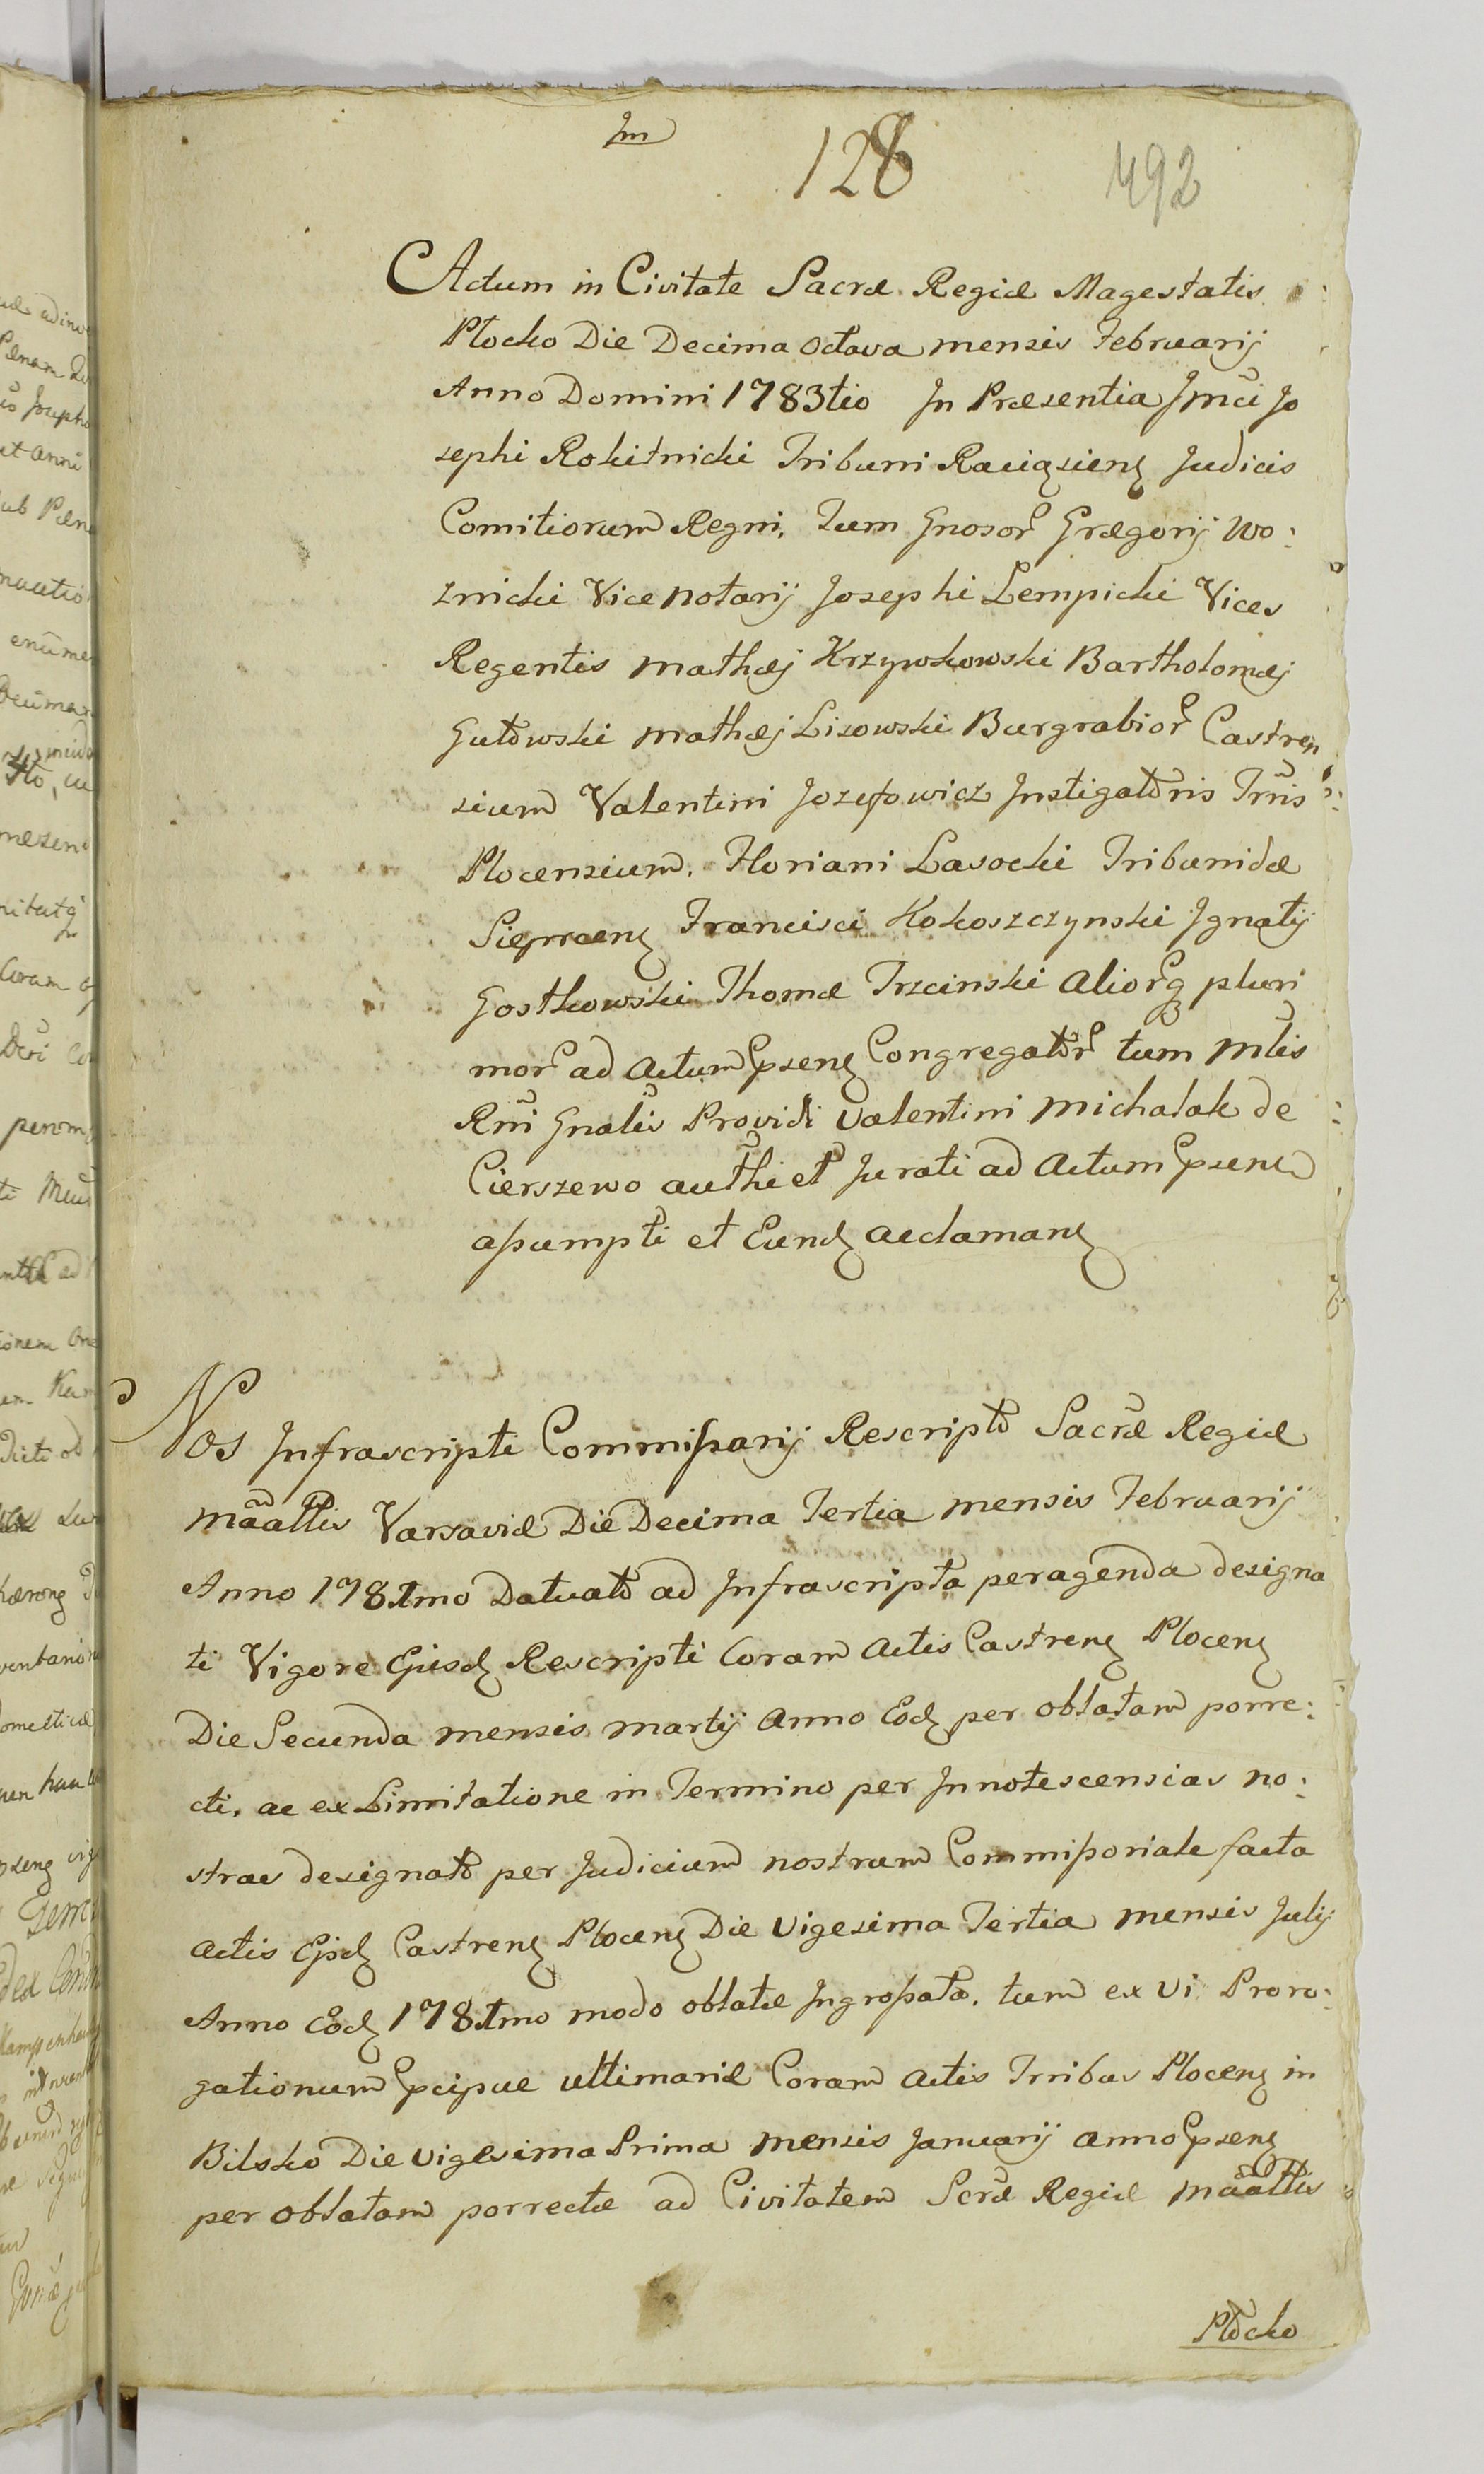 Im
128
492
Actum in Civitate Sacræ Regiæ Magestatis
Płocko Die Decima Octava mensis Februarij
Anno Domini 1783tio In Præsentia Jmci Jo
sephi Rokitnicki Tribuni Raciązien Judicis
Comitiorum Regni, Tum Gnosor Grægorij Wo:
znicki Vice notarij Josephi Lempicki Vices
Regentis mathæj Krzywkowski Bartholomæj
Gutowski mathæj Lisowski Burgrabior Castren
sium Valentini Jozefowicz Instigatoris Trris
Plocensium. Floriani Lasocki Tribunidæ
Sieprcen Francisci Kokoszczynski Ignatij
Gostkowski Thomæ Trzcinski aliorq pluri
mor ad actum psen Congregator tum Mlis
Rni Gnalis Providi Valentini michalak de
Cierszewo authi et Jurati ad actum psene
assumpti et Eund acclaman
Nos Infrascripti Commissarij Rescripto Sacræ Regiæ
mãattis Varsaviæ Die Decima Tertia mensis Februarij
Anno 1781mo Datuato ad Infrascripta peragenda designa
ti Vigore Ejusd Rescripti Coram actis Castren Plocen
Die Secunda mensis martij anno Eod per oblatam porre:
cti, ac ex Limitatione in Termino per Innotescencias no:
stras designato per Judicium nostrum Commissoriale facta
actis Ejsd Castren Plocen Die Vigesima Tertia mensis Julij
Anno Eod 1781mo modo oblatæ Ingrossata, tum ex vi Proro:
gationum pcipue ultimariæ Coram actis Trribus Plocen in
Bilsko Die vigesima Prima mensis Januarij anno psen
per oblatam porrectæ ad Civitatem Scræ Regiæ mãattis
Płocko